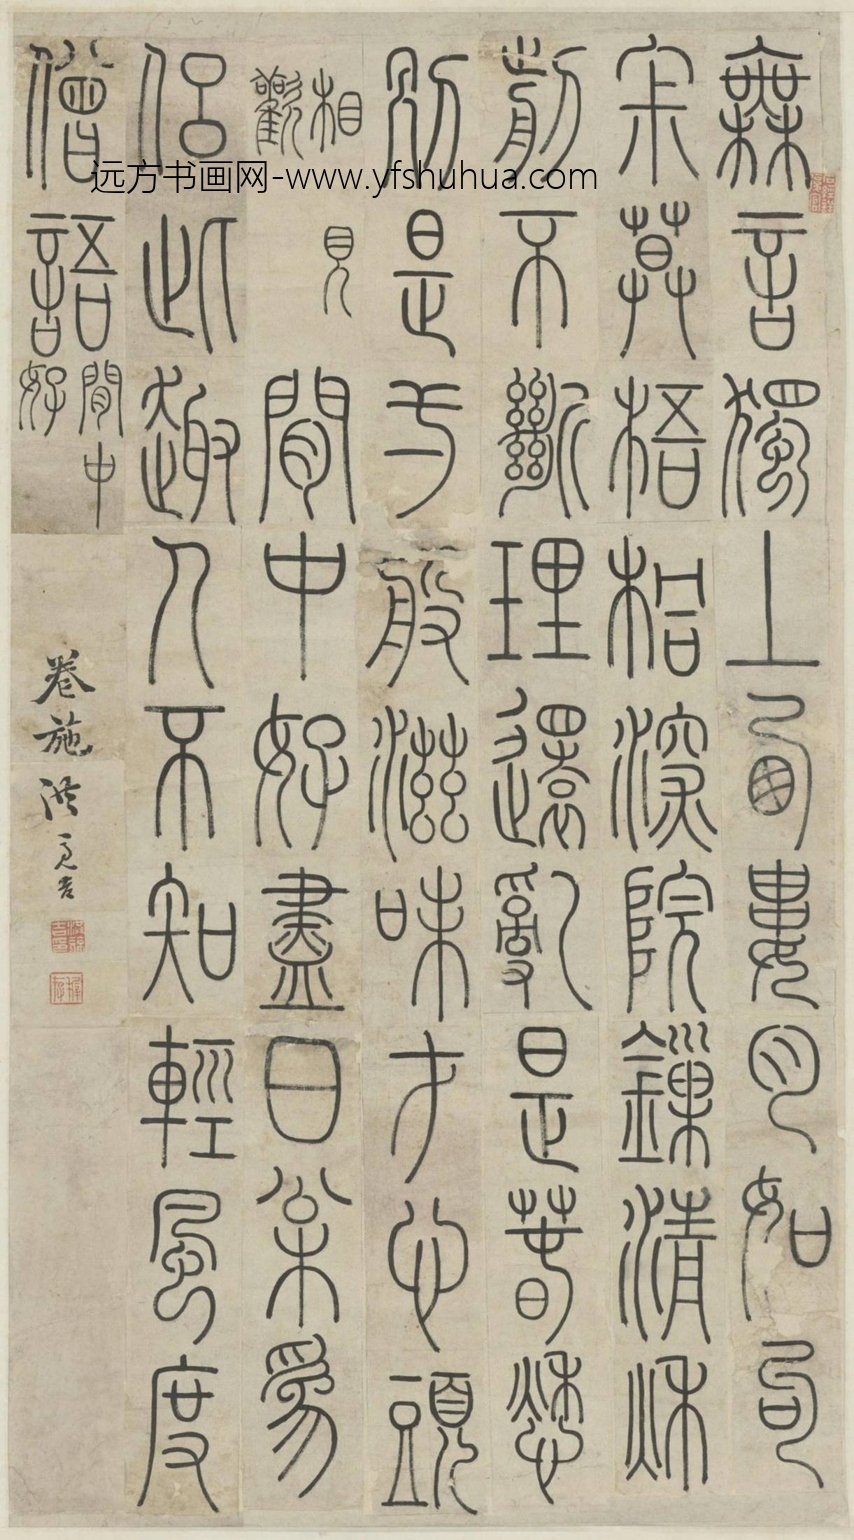 無言獨上西婁月如句
寂莫梧桐深院鏁清秌
前不斷理還亂是萅愁
別是一般滋味才心頭
相見歡
閒中好盡日枀爲
侶此趣人不知輕風度
僧語
閒中好
卷施洪亮吉
远方书画网-www.yfshuhua.com